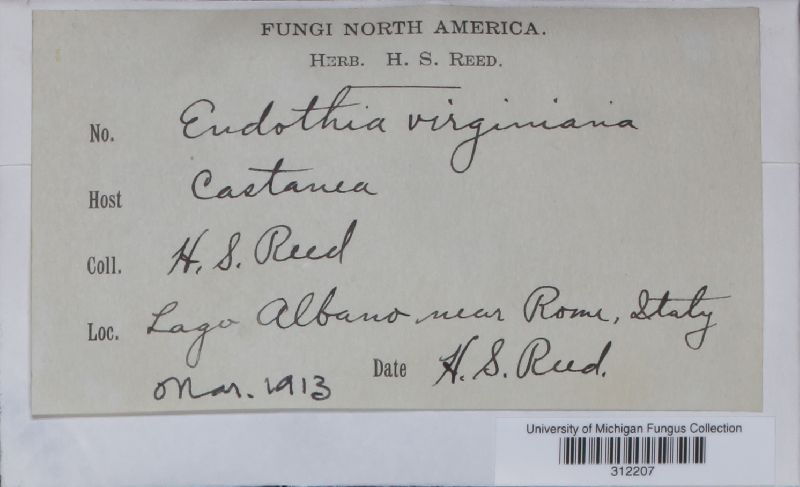 FUNGI NORTH AMERICA.
HERB. H. S. REED.
No. Endothia virginiana
Host Castanea
Coll. H. S. Reed
Loc. Lago Albano near Rome, Italy
Mar. 1913 Date H. S. Reed.
University of Michigan Fungus Collection
312207